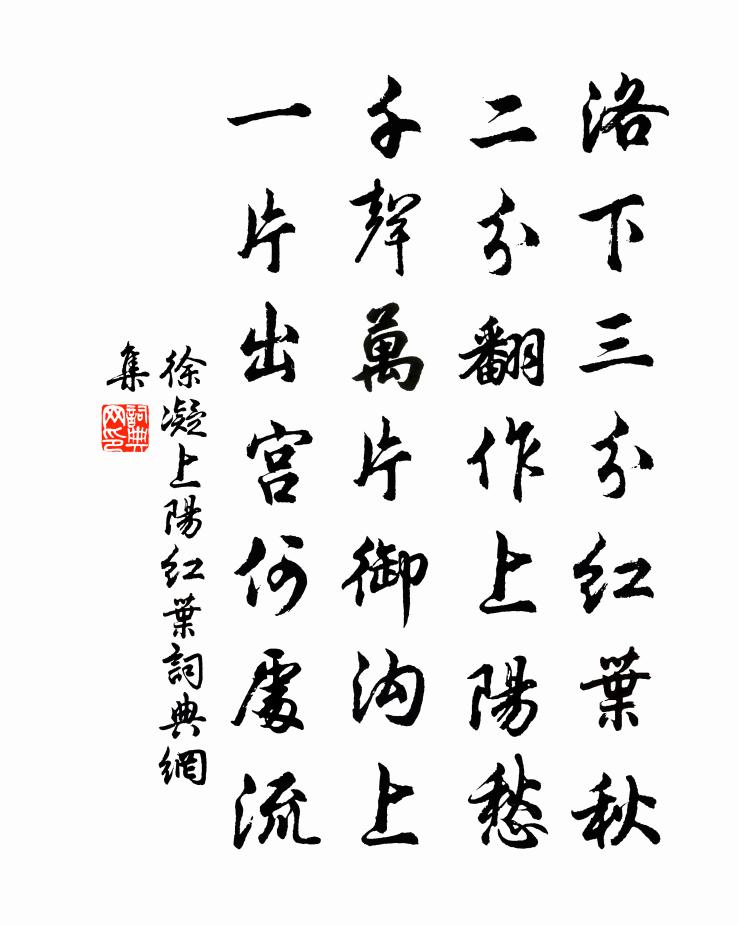 洛下三分紅葉秋
二分翻作上陽愁
千聲萬片御沟上
一片出宫何處流
徐凝上陽红葉詞典網
集
詞典
网印